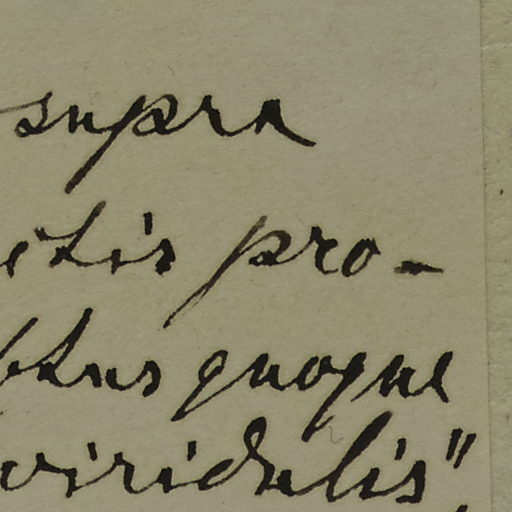 supra
etis pro-
btus quoque
viridulis",